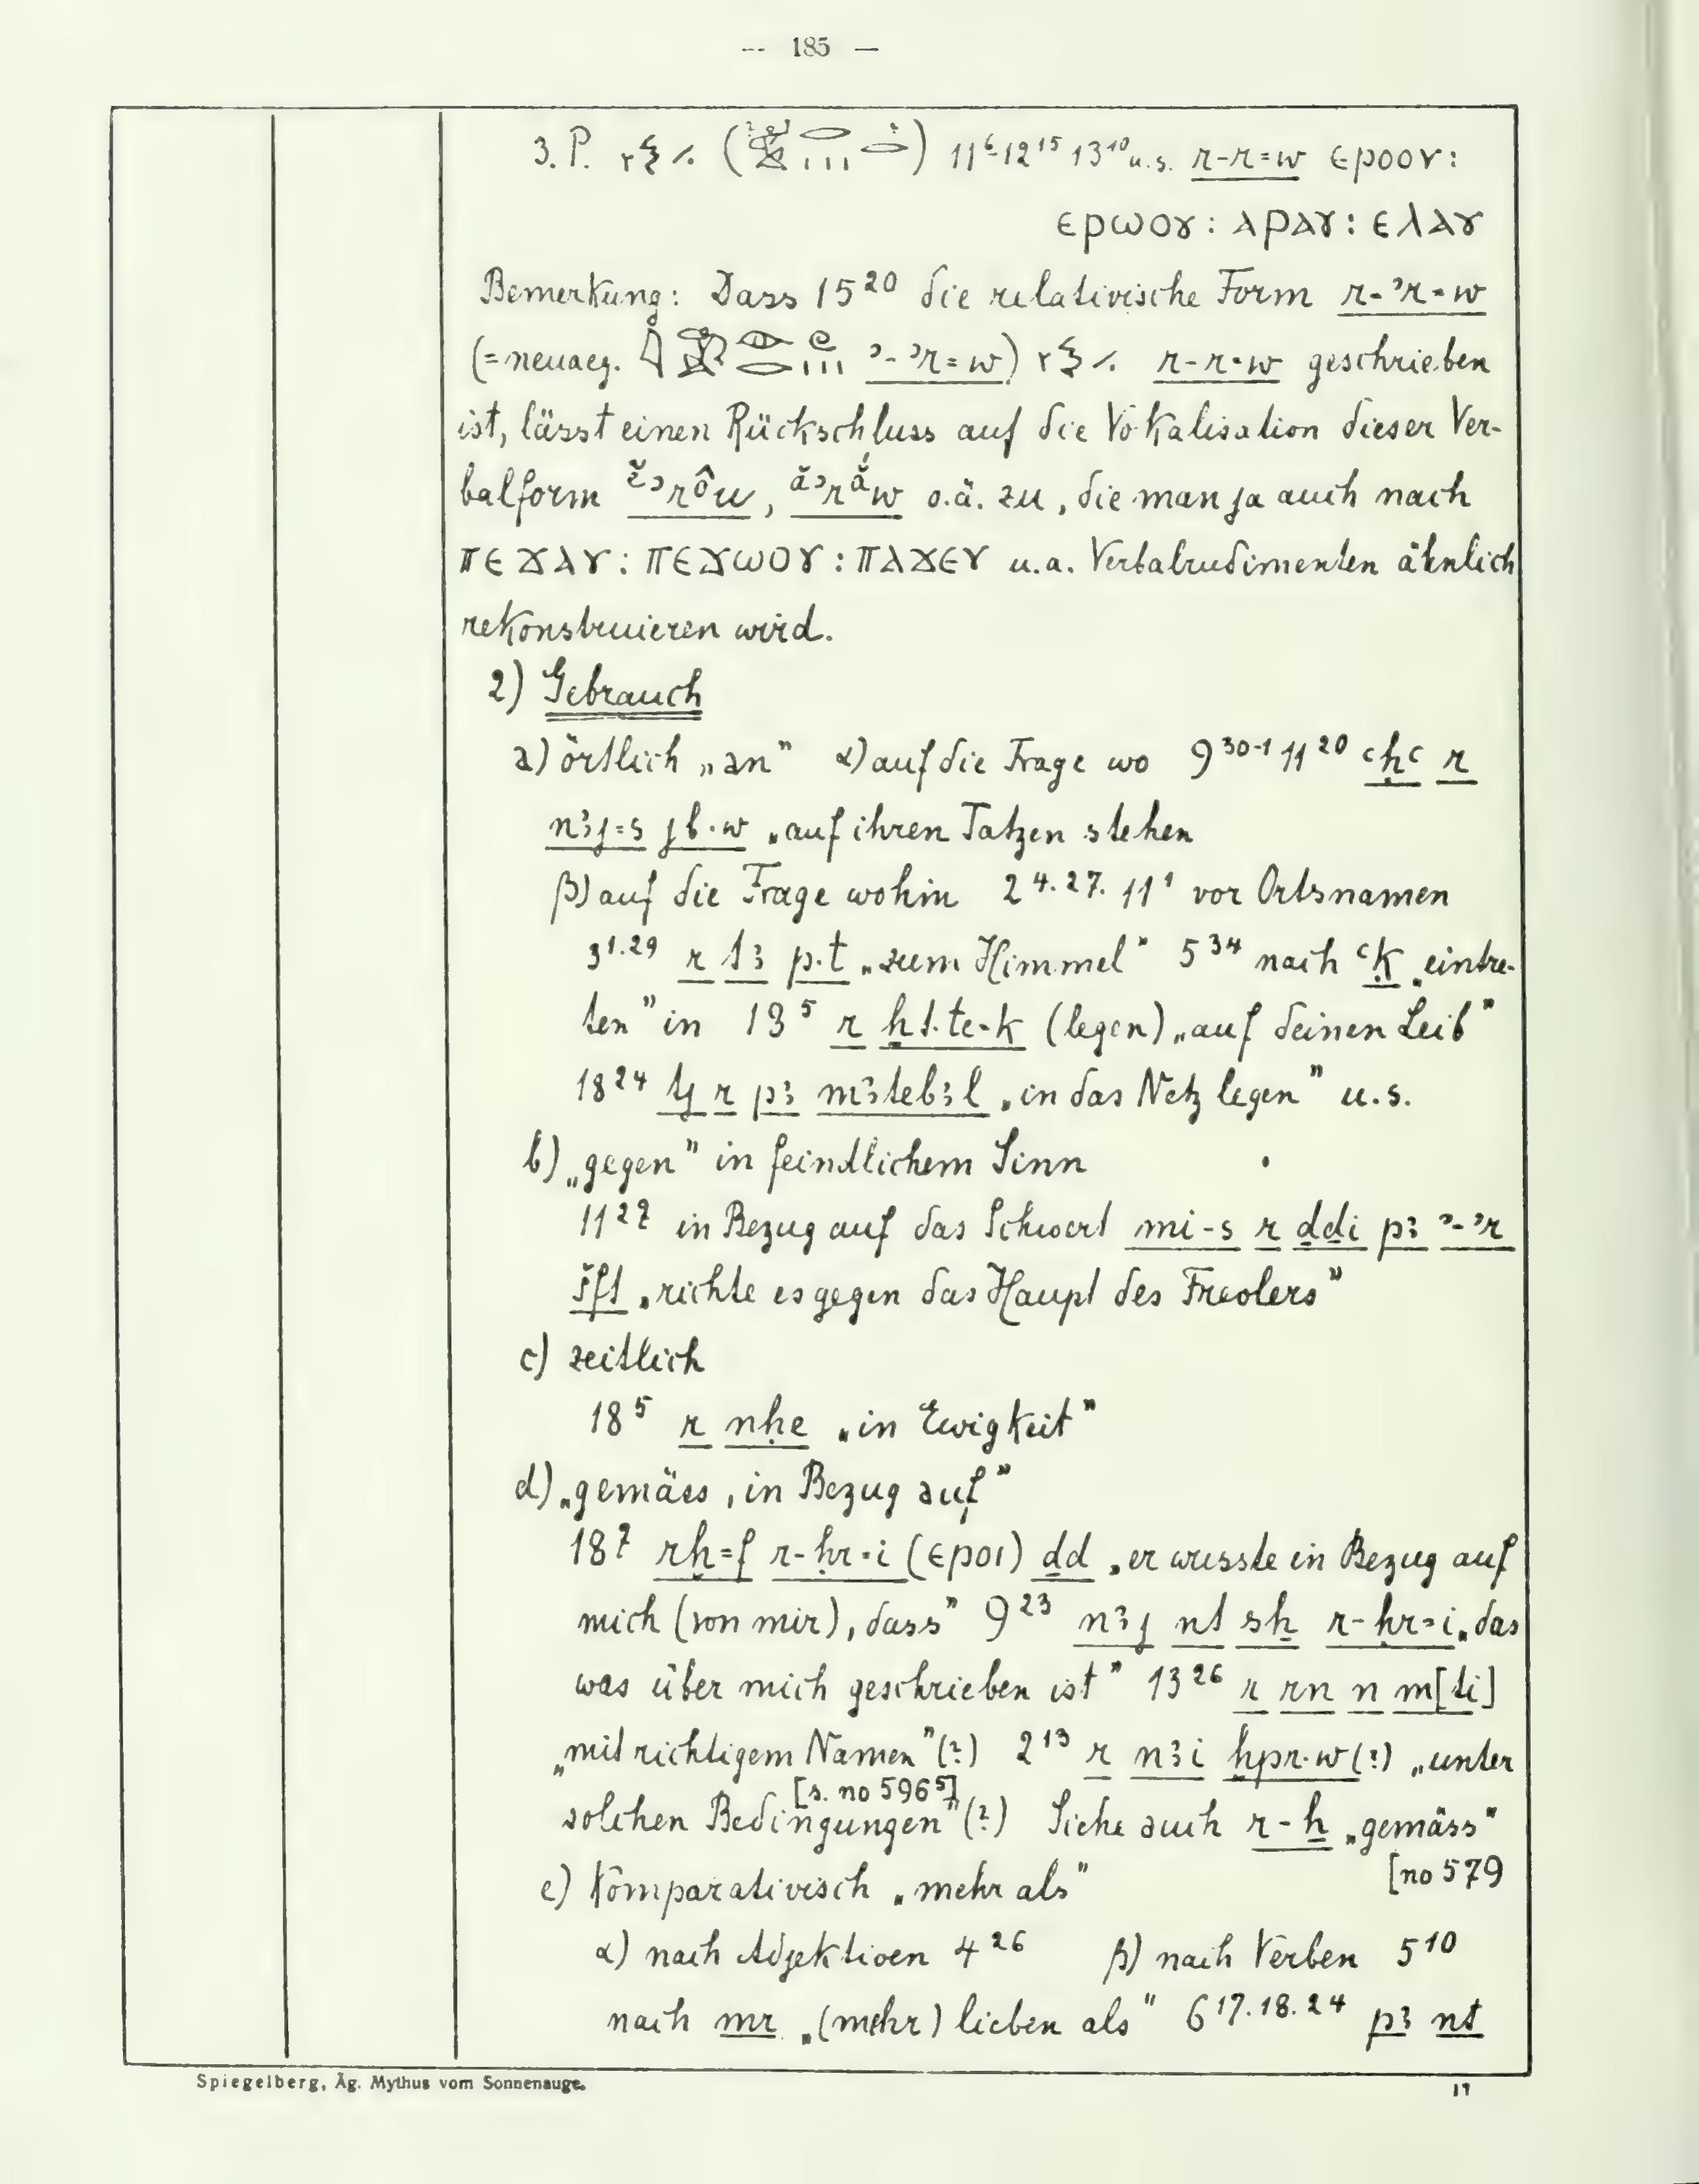 — 185 —
3. P. ( ) 11⁶ 12¹⁵ 13¹⁰ u.s. r-r=w ⲉⲣⲟⲟⲩ:
ⲉⲣⲱⲟⲩ: ⲁⲣⲁⲩ: ⲉⲗⲁⲩ
Bemerkung: Dass 15²⁰ die relativische Form r-ʾr=w
(=neuaeg. ʾ-ʾr=w) r-r=w geschrieben
ist, lässt einen Rückschluss auf die Vokalisation dieser Ver-
balform ĕʾrôu, ăʾrăw o.ä. zu, die man ja auch nach
ⲡⲉϫⲁⲩ: ⲡⲉϫⲱⲟⲩ: ⲡⲁϫⲉⲩ u.a. Verbalrudimenten ähnlich
rekonstruieren wird.
2) Gebrauch
a) örtlich „an" α) auf die Frage wo 9³⁰⁻¹ 11²⁰ ꜥḥꜥ r
nꜣj=s jb.w „auf ihren Tatzen stehen
β) auf die Frage wohin 2⁴·²⁷· 11¹ vor Ortsnamen
3¹·²⁹ r tꜣ p.t „zum Himmel" 5³⁴ nach ꜥḳ „eintre-
ten" in 13⁵ r ẖt.te-k (legen) „auf deinen Leib"
18²⁴ tj r pꜣ mꜣtebꜣl „in das Netz legen" u.s.
b) „gegen" in feindlichem Sinn
11²⁷ in Bezug auf das Schwert mi-s r ḏḏi pꜣ ʾ-ʾr
šft „richte es gegen das Haupt des Frevlers"
c) zeitlich
18⁵ r nḥe „in Ewigkeit"
d) „gemäss, in Bezug auf"
18⁷ rḫ=f r-ḥr=i (ⲉⲣⲟⲓ) ḏd „er wusste in Bezug auf
mich (von mir), dass" 9²³ nꜣj nt sẖ r-ḥr=i „das
was über mich geschrieben ist" 13²⁶ r rn n m[ti]
„mit richtigem Namen" (?) 2¹³ r nꜣi ḫpr.w (?) „unter
solchen Bedingungen" (?) [s. no 596⁵] Siehe auch r-ẖ „gemäss"
[no 579
e) Komparativisch „mehr als"
α) nach Adjektiven 4²⁶ β) nach Verben 5¹⁰
nach mr „(mehr) lieben als" 6¹⁷·¹⁸·²⁴ pꜣ nt
Spiegelberg, Äg. Mythus vom Sonnenauge.